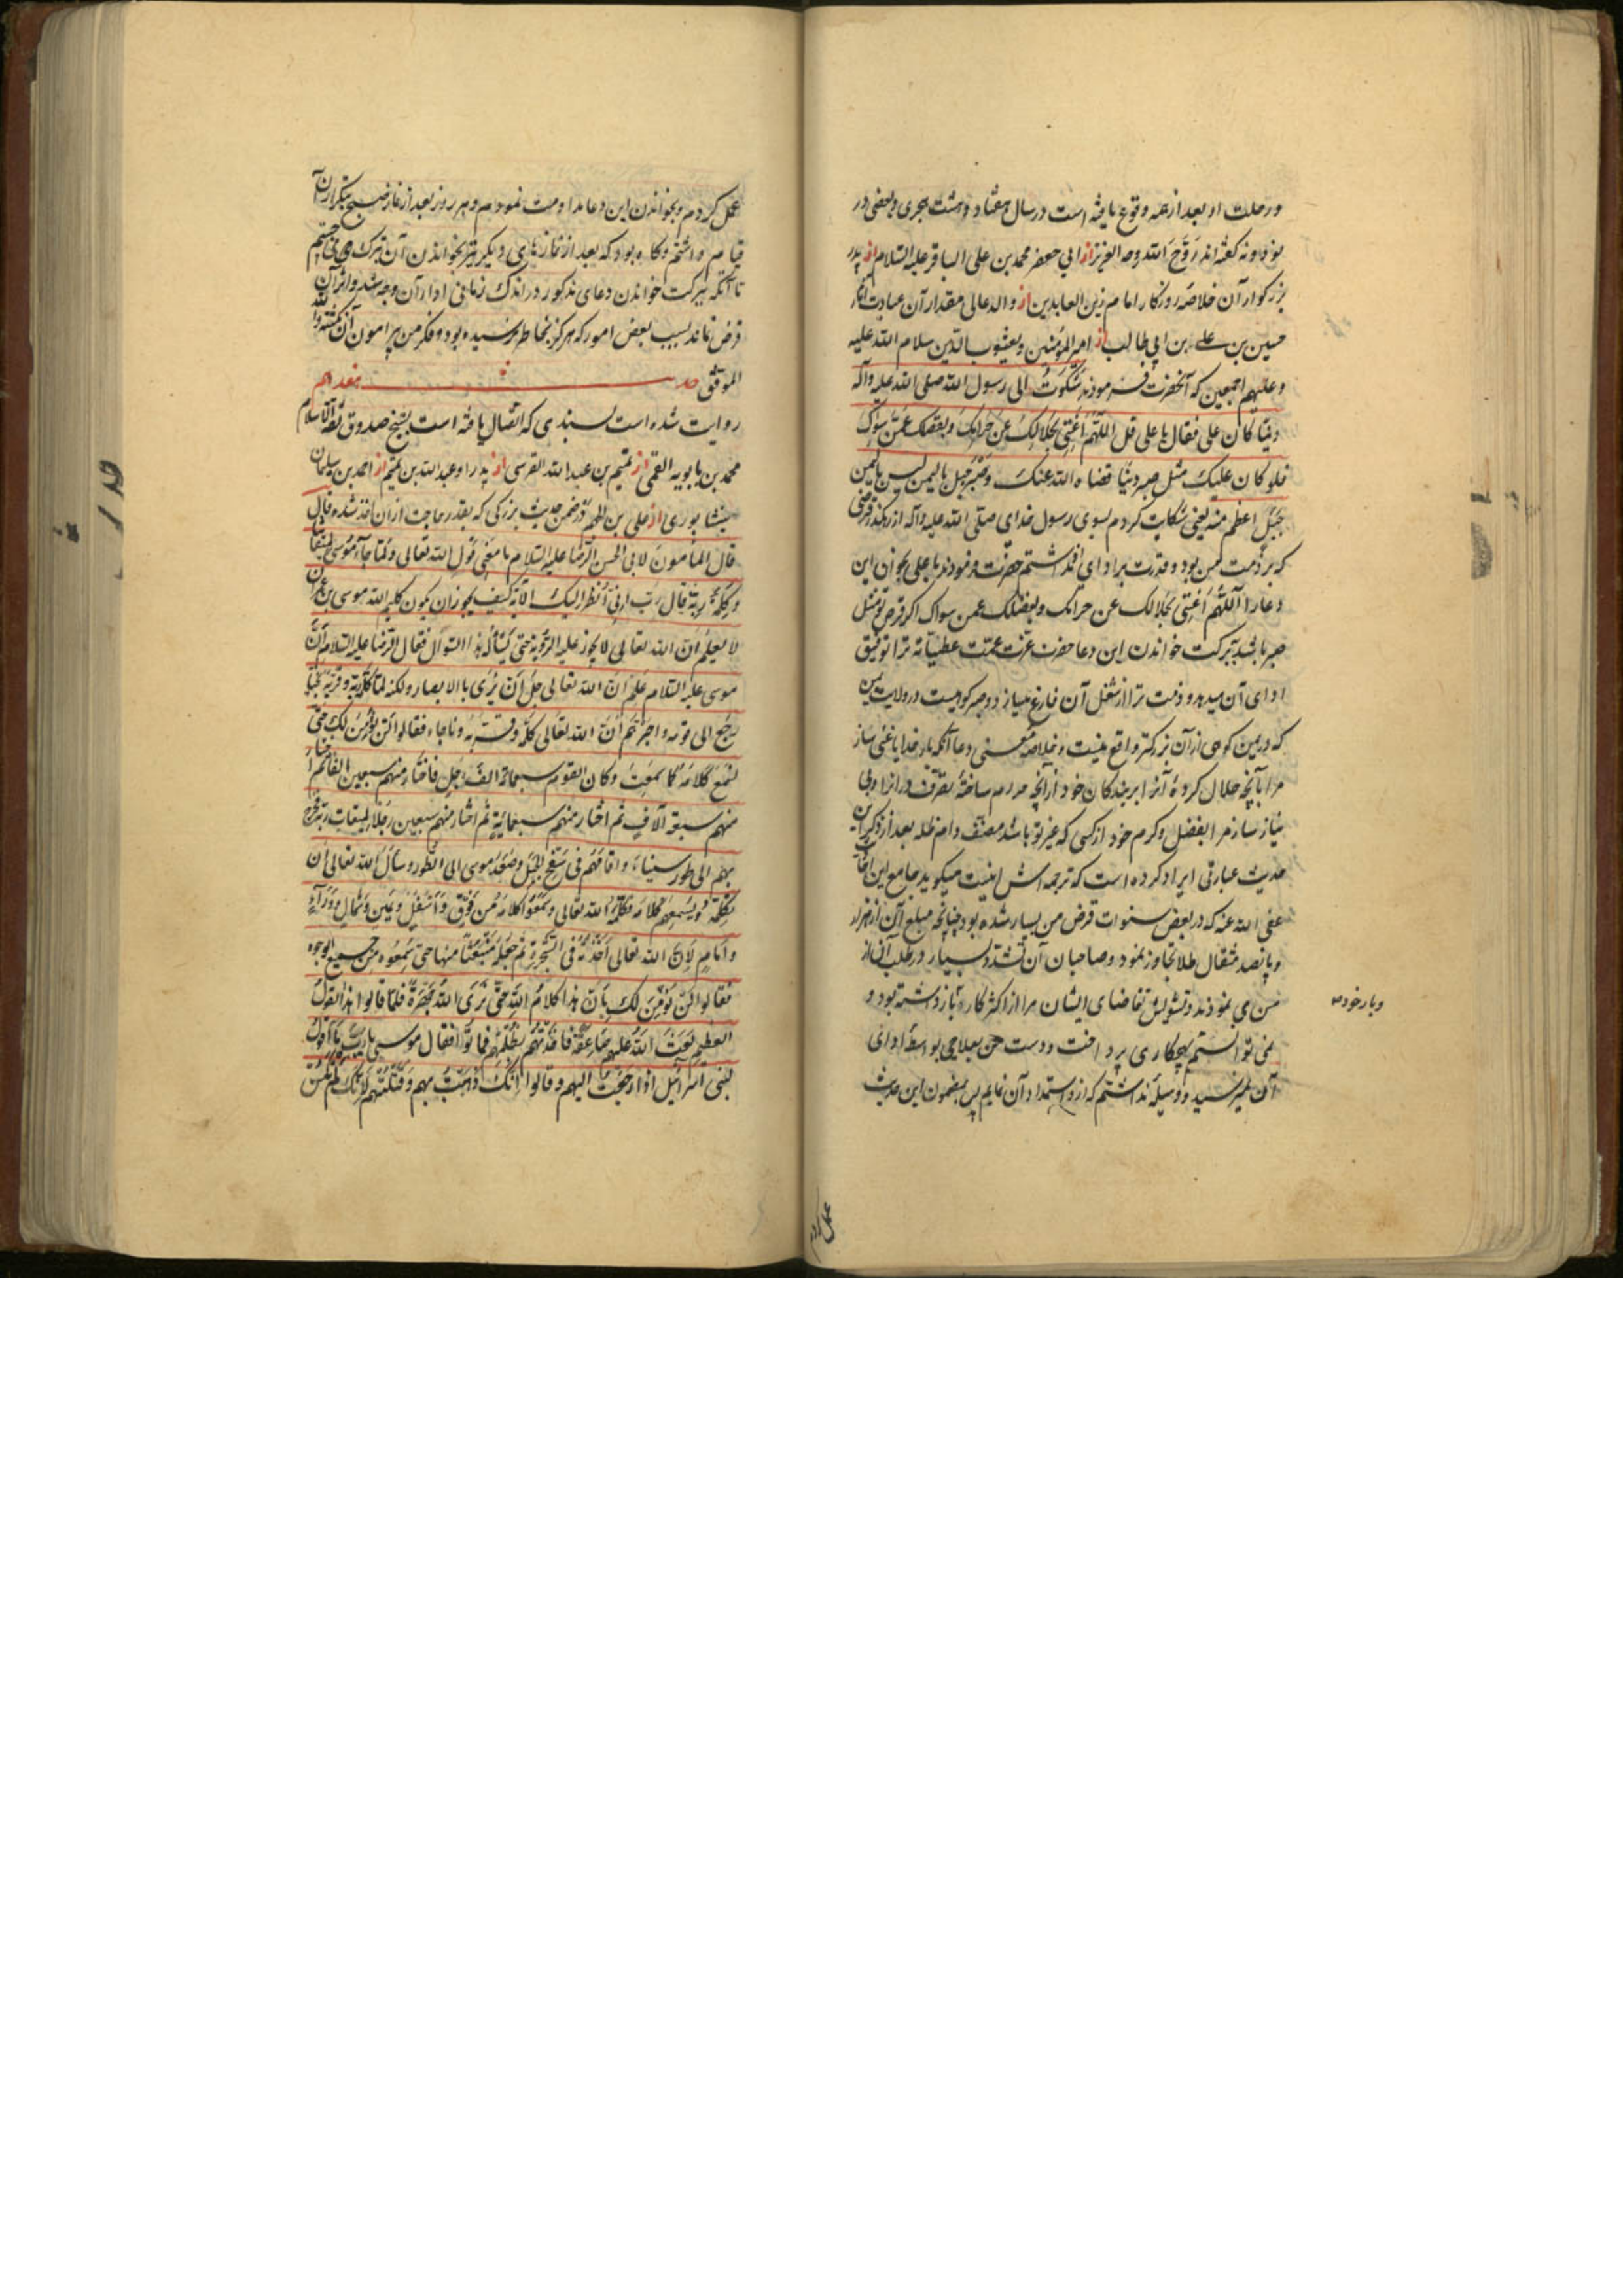 و رحلت او بعد از همه وقوع یافته است در سال هفتاد و هشت هجری و بعضی در
نود و نه گفته‌اند رَوَّحَ الله روحه العزیز از ابی جعفر محمد بن علی الباقر علیه السلام از پدر
بزرکوار آن خلاصه روزکار امام زین العابدین از والد عالی مقدار آن عبادت
حسین بن علی بن ابی طالب از امیر المؤمنین و یعسوب الدین سلام الله علیه
و علیهم اجمعین که آنحضرت فرمودند شَکَوْتُ الی رسول الله صلی الله علیه وآله
دینا کان علی فقال یا علی قل اللّهُمَّ اَغْنِنِی بِحَلالِکَ عَن حَرامِکَ وبفضلک عَمَّن سِواک
فلو کان علیک مثل صبیر دینا قضاه الله عنک وصبیر جبل بالیمن لیس بالیمن
جَبَل اعظم منه یعنی شکایت کردم بسوی رسول خدای صلی الله علیه وآله از رهکذر قرضی
که بر ذمت من بود و قدرت بر ادای آن نداشتم حضرت فرمودند یا علی بخوان این
دعا را اللّهُمَّ اَغْنِنی بحَلالک عن حرامک وبفضلک عمن سواک اکر قرض تو مثل
صبیر باشد ببرکت خواندن این دعا حضرت عزت عمّت عطیّاته ترا توفیق
ادای آن میدهد و ذمت ترا از شغل آن فارغ میسازد و صبیر کوهیست در ولایت یمن
که در یمن کوهی از آن بزرکتر واقع نیست و خلاصه معنی دعا آنکه بار خدایا غنی ساز
مرا بآنچه حلال کرده آنرا بر بندکان خود از آنچه حرام ساخته تصرف در انرا و بی
نیاز ساز مرا بفضل و کرم خود از کسی که غیر تو باشد مصنف دام ظله بعد از ذکر این
حدیث عبارتی ایراد کرده است که ترجمه اش اینست میکوید جامع این احادیث
عفی الله عنه که در بعض سنوات قرض من بسیار شده بود چنانچه مبلغ آن از هزار
و پانصد مثقال طلا تجاوز نمود و صاحبان آن تشدد بسیار در طلب آن از
من می نمودند و تشویش تقاضای ایشان مرا از اکثر کارها باز داشته بود و
و بار خود
نمی توانستم بهیچ کاری پرداخت و دست من بعلاجی بواسطه ادای
آن نمیرسید و وسیله نداشتم که از او استمداد آن نمایم پس بمضمون این حدیث
عمل کردم
عمل کردم و بخواندن این دعا مداومت نمودم و هر روز بعد از نماز صبح بتکرار آن
قیام داشتم و کاه بود که بعد از نمازهای دیکر نیز بخواندن آن تبرک می جستم
تا آنکه ببرکت خواندن دعای مذکور در اندک زمانی ادا آن وجه شد و اثر آن
قرض نماند بسبب بعض امور که هرکز بخاطر نرسیده بود و فکر من پیرامون آن نکشته والله
الموفق حدیث هفدهم
روایت شده است بسندی که اتصال یافته است بشیخ صدوق ثقة الاسلام
محمد بن بابویه القمی از تمیم بن عبد الله القرشی از پدر او عبد الله بن تمیم از احمد بن سلیمان
نیشابوری از علی بن الجهم در ضمن حدیث بزرکی که بقدر حاجت از ان اخذ شده قال
قال المأمون لابی الحسن الرضا علیه السلام ما معنی قول الله تعالی ولمّا جاء موسی لمیقاتنا
وکلّمه ربّه قال ربّ ارنی اَنظر الیک الآیة کیف یجوز ان یکون کلیم الله موسی بن عمران
لا یعلم ان الله تعالی لا یجوز علیه الرؤیة حتی یسأله هذا السؤال فقال الرضا علیه السلام انّ
موسی علیه السلام علم انّ الله تعالی جلّ اَن یُری بالابصار ولکنه لما کلّمه الله وقرّبه نجیّا
رجع الی قومه واخبرهم انّ الله تعالی کلّمه وقرّبه وناجاه فقالوا لن نؤمن لک حتی
نسمع کلامه کما سمعت وکان القوم سبعمائة الف رجل فاختار منهم سبعین الفا ثم اختار
منهم سبعة آلاف ثم اختار منهم سبعمائة ثم اختار منهم سبعین رجلا لمیقات ربه فخرج
بهم الی طور سیناء واقامهم فی سفح الجبل وصعد موسی الی الطور وسأل الله تعالی ان
یکلّمه ویسمعهم کلامه فکلّمه الله تعالی وسمعوا کلامه من فوق واسفل ویمین وشمال ووراء
وامام لانّ الله تعالی احدثه فی الشجرة ثم جعله منبعثا منها حتی سمعوه من جمیع الوجوه
فقالوا لن نؤمن لک بانّ هذا کلام الله حتی نری الله جهرة فلمّا قالوا هذا القول
العظیم بعث الله علیهم صاعقة فاخذتهم بظلمهم فماتوا فقال موسی یا ربّ ما اقول
لبنی اسرائیل اذا رجعت الیهم وقالوا انّک ذهبت بهم وقتلتهم لانّک لم تکن